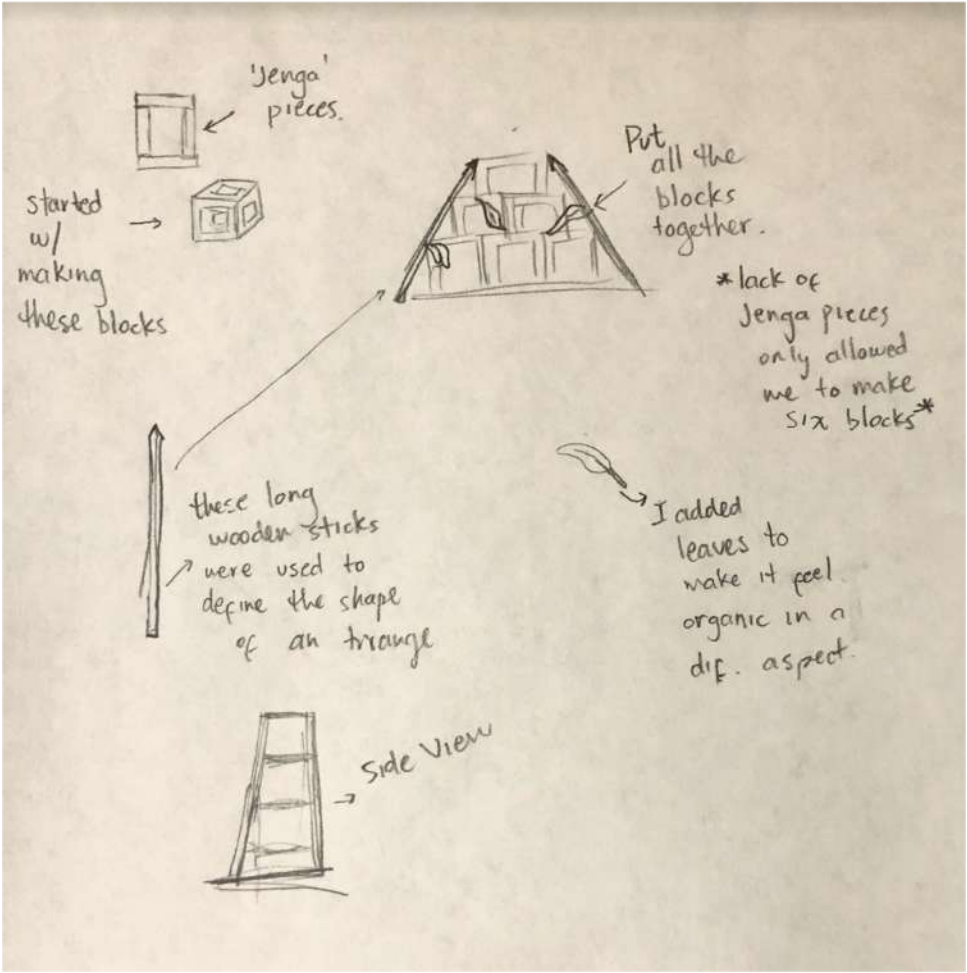 'Jenga'
pieces.
started
w/
making
these blocks
Put
all the
blocks
together.
*lack of
Jenga pieces
only allowed
me to make
six blocks*
these long
wooden sticks
were used to
define the shape
of an triange
I added
leaves to
make it feel
organic in a
dif. aspect.
Side View